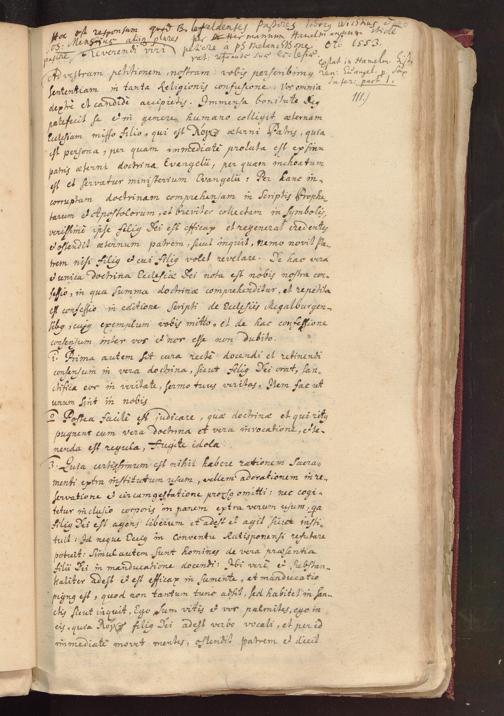 Hoc est responsum quod Bilefeldenses Pastores
Reverendi viri
petiere a Ph. Melanthone. Oct. 1553.
Ad vestram petitionem, nostram vobis perscribimus
sententiam in tanta Religionis confusione. Vos omnia
et candide accipietis. Immensa bonitate
patefecit se et in genere humano collegit æternam
Ecclesiam misso Filio, qui est λόγος æterni Patris, quia
est persona, per quam immediate prolata est ex sinu
patris æterni doctrina Evangelii, per quam inchoatum
est et servatur ministerium Evangelii: Per hanc in-
corruptam doctrinam comprehensam in Scriptis Prophe-
tarum et Apostolorum, et breviter collectam in Symbolis,
verissime ipse filius Dei est efficax et regenerat credentes
et ostendit æternum patrem, sicut inquit, nemo novit Pa-
trem nisi filius et cui filius volet revelare. De hac vera
et unica doctrina Ecclesiæ Dei nota est nobis nostra con-
fessio, in qua summa doctrinæ comprehenditur, et repetita
est confessio in editione scripti de Ecclesiis Megalburgen-
sibus, cujus exemplum vobis mitto, et de hac confessione
consensum inter vos et nos esse non dubito.
1. Prima autem sit cura recte docendi et retinendi
consensum in vera doctrina, sicut filius Dei orat, San-
ctifica eos in veritate, sermo tuus veritas. Item fac ut
unum sint in nobis
2. Postea facile est judicare, quæ doctrinæ et qui ritus
pugnent cum vera doctrina et vera invocatione, et te-
nenda est regula, Fugite idola.
3. Quia certissimum est nihil habere rationem Sacra-
menti extra institutum usum, vellem adorationem in re-
servatione et circumgestatione prorsus omitti: nec cogi-
tetur inclusio corporis in panem extra verum usum, quia
filius Dei est agens liberum et adest et agit sicut insti-
tuit. Id neque Eccius in conventu Ratisponensi refutare
potuit: Simul autem sunt homines de vera præsentia
filii Dei in manducatione docendi: Ibi vere et substan-
tialiter adest et est efficax in sumente, et manducatio
pignus est, quod non tantum tunc adsit, sed habitet in San-
ctis sicut inquit, Ego sum vitis et vos palmites, ego in
eis, quia λόγος filius Dei adest verbo vocali, et per id
immediate movet mentes, ostendit patrem et dicit